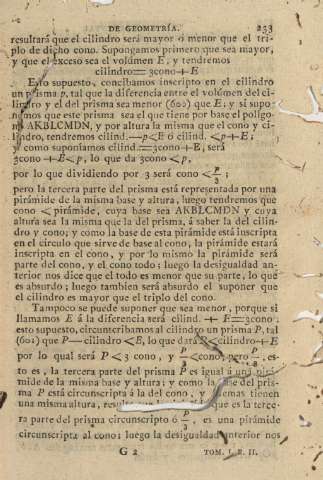 DE GEOMETRÍA. 233
resultará que el cilindro será mayor ó menor que el tri-
plo de dicho cono. Supongamos primero que sea mayor,
y que el exceso sea el volúmen E, y tendremos
cilindro=3cono+E
Esto supuesto, concibamos inscripto en el cilindro
un prisma p, tal que la diferencia entre el volúmen del ci-
lindro y el del prisma sea menor (600) que E; y si supo-
nemos que este prisma sea el que tiene por base el polígo-
no AKBLCMDN, y por altura la misma que el cono y ci-
lindro, tendremos cilind.—p<E ó cilind. <p+E;
y como suponíamos cilind.=3cono+E, será
3cono +E<p, lo que da 3cono <p,
por lo que dividiendo por 3 será cono < p/3 ;
pero la tercera parte del prisma está representada por una
pirámide de la misma base y altura, luego tendremos que
cono < pirámide, cuya base sea AKBLCMDN y cuya
altura sea la misma que la del prisma, á saber la del cilin-
dro y cono; y como la base de esta pirámide está inscripta
en el círculo que sirve de base al cono, la pirámide estará
inscripta en el cono, y por lo mismo la pirámide será
parte del cono, y el cono todo; luego la desigualdad an-
terior nos dice que el todo es menor que su parte, lo que
es absurdo; luego tambien será absurdo el suponer que
el cilindro es mayor que el triplo del cono.
Tampoco se puede suponer que sea menor, porque si
llamamos E á la diferencia será cilind. + E=3cono:
esto supuesto, circunscribamos al cilindro un prisma P, tal
(601) que P—cilindro <E, lo que dará P<cilindro+E
por lo qual será P<3 cono, y P/3 <cono; pero P/3, es-
to es, la tercera parte del prisma P es igual á una pirá-
mide de la misma base y altura; y como la base del pris-
ma P está circunscripta á la del cono, y además tienen
una misma altura, que es la terce-
ra parte del prisma circunscripto ó P/3, es una pirámide
circunscripta al cono; luego la desigualdad anterior nos
G 2 TOM. I. P. II.